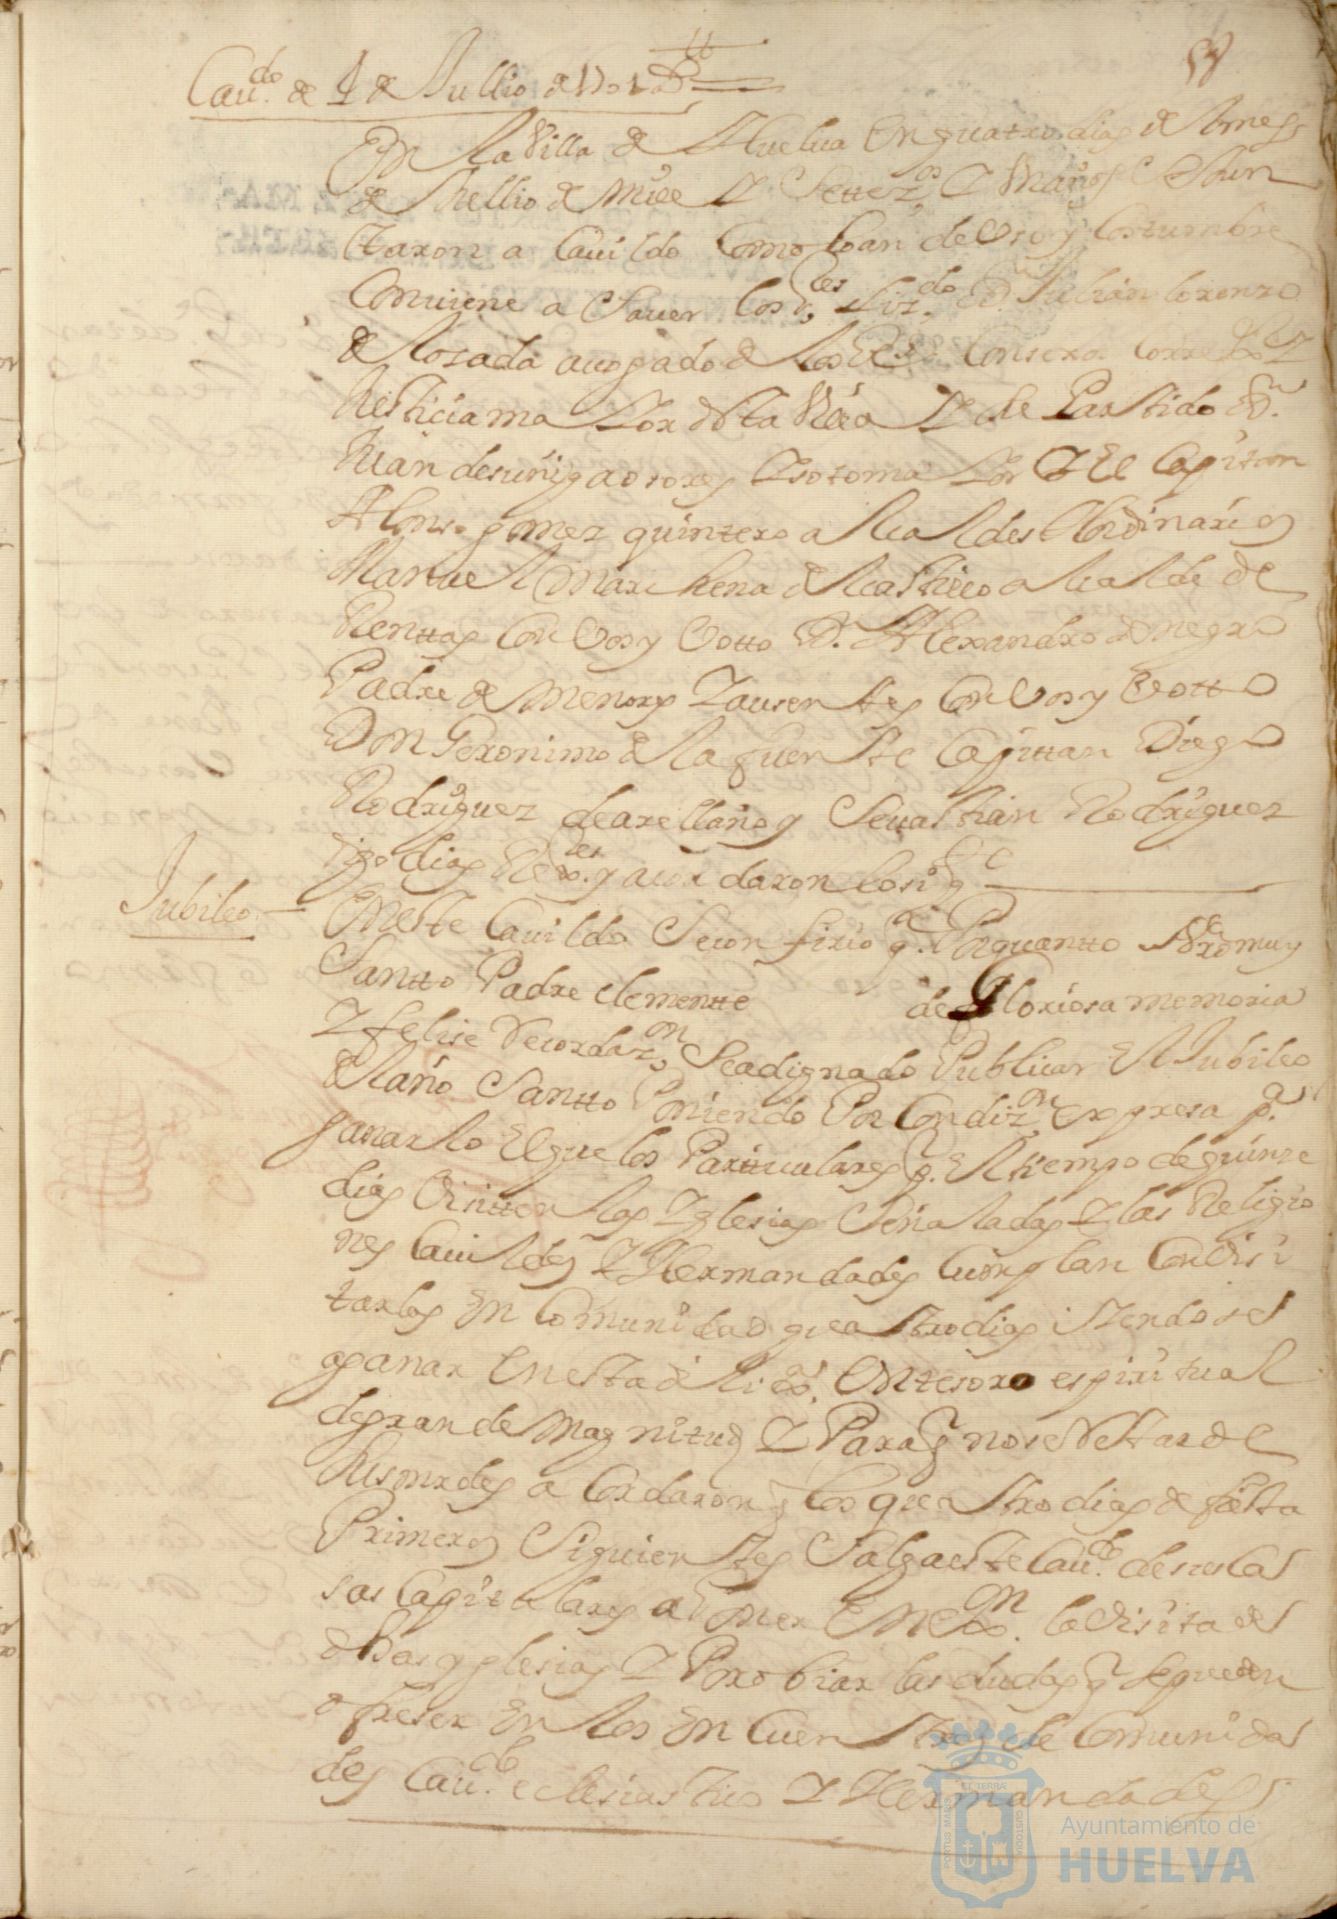 Cau.do de 4 de Jullio de 1702
En la Villa de Huelua En quatro dias del mes
de Jullio de mill Y Settez.os Y Un años se Jun
taron a Cauildo Como loan de Uso y Costumbre
Combiene a Sauer los S.res Liz.do D.n Julian lorenzo
de losada auogado de los R.s Consexos Correx.or Y
Justicia ma Yor desta Villa Y de Su Partido D.n
Juan de suñiga osores Y sotoma Yor Y El Capitan
Alonso gomez quintero alcaldes Ordinarios
Manuel Marchena del Castillo alcalde de
Renttas Con Vos y Votto D. Alexandro de negro
Padre de Menores Y ausentes Con Vos y Votto
Don Geronimo de la fuente Capittan Diego
Rodriguez de arellano y Seuastian Rodriguez
Regidores y acordaron lo sig.te
Jubileo
En este Cauildo Se confirio q. Por quantto Nro muy
Santto Padre Clementte de Gloriosa memoria
Y felise Recordaz.on Se a dignado Publicar El Jubileo
del año Santto Poniendo Por Condiz.on expresa p.a
ganarlo El que los Particulares p. El tiempo de quinze
dias Visitten las Yglesias Señaladas Y las Religio
nes Cauildes Y Hermandades Cumplan Con Visi
tarlas En Comunidad quatro dias
a ganar En esta Un tesoro espiritual
de grande Magnitud Y Para q no se Retarde
Sus mrdes aCordaron q los quatro dias de fiesta
Primeros Siguientes Salga este Cau.do de sus Ca
sas Capitulares a hazer En la Visita de
dhas yglesias Y Para obiar las dudas q se pueden
ofreser En los En Cuentros de Comunida
des Cau.do eclesiastico Y Hermandades
Ayuntamiento de
HUELVA